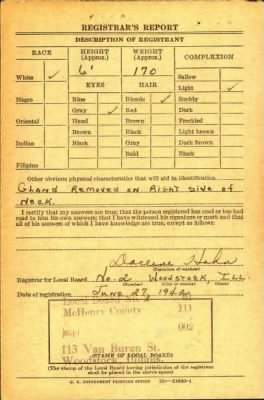 REGISTRAR'S REPORT
DESCRIPTION OF REGISTRANT
RACE HEIGHT (Approx.) WEIGHT (Approx.) COMPLEXION
6' 170
White ✓ EYES HAIR Sallow
Light ✓
Negro Blue Blonde ✓ Ruddy
Gray ✓ Red Dark
Oriental Hazel Brown Freckled
Brown Black Light brown
Indian Black Gray Dark brown
Bald Black
Filipino
Other obvious physical characteristics that will aid in identification.
Gland Removed on Right side of
Neck.
I certify that my answers are true; that the person registered has read or has had
read to him his own answers; that I have witnessed his signature or mark and that
all of his answers of which I have knowledge are true, except as follows:
Hahn
(Signature of registrar)
Registrar for Local Board No-2 Woodstock, Ill.
(Number) (City or county) (State)
Date of registration June 27, 1942
Local Board No. 2 111
McHenry County
002
113 Van Buren St.
Woodstock, Illinois.
(STAMP OF LOCAL BOARD)
(The stamp of the Local Board having jurisdiction of the registrant
shall be placed in the above space)
U. S. GOVERNMENT PRINTING OFFICE 16—21630-1